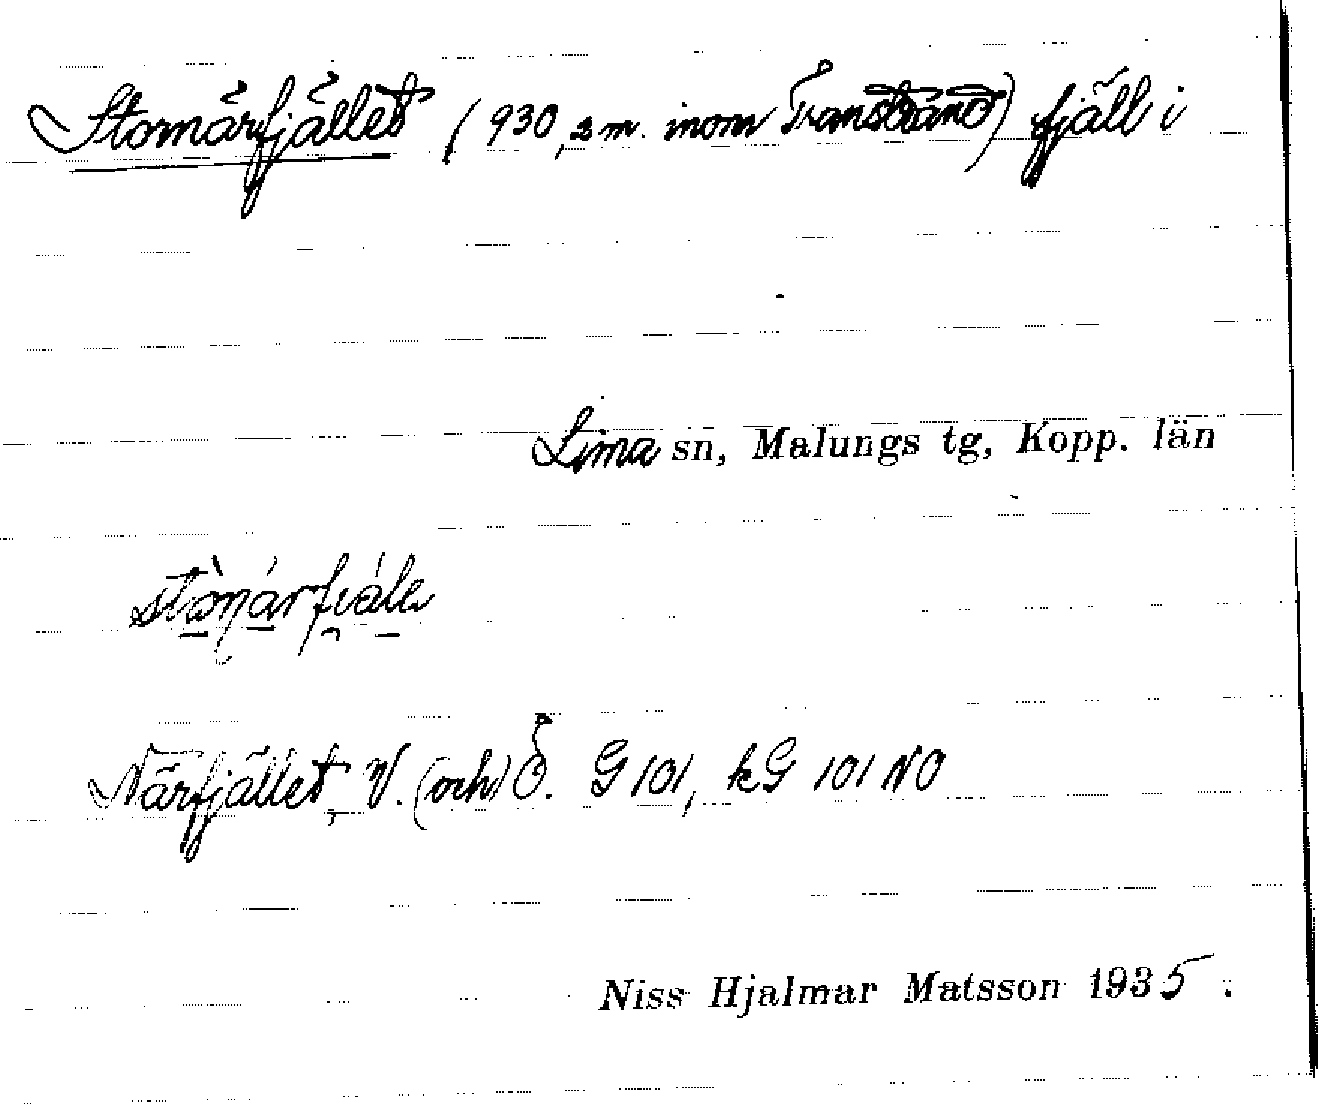 Stornärfjället (930,2 m. inom Transtrand) fjäll i
Lima sn, Malungs tg, Kopp. län
Närfjället, V. (och) Ö. G 101, kG 101 NO
Niss Hjalmar Matsson 1935.